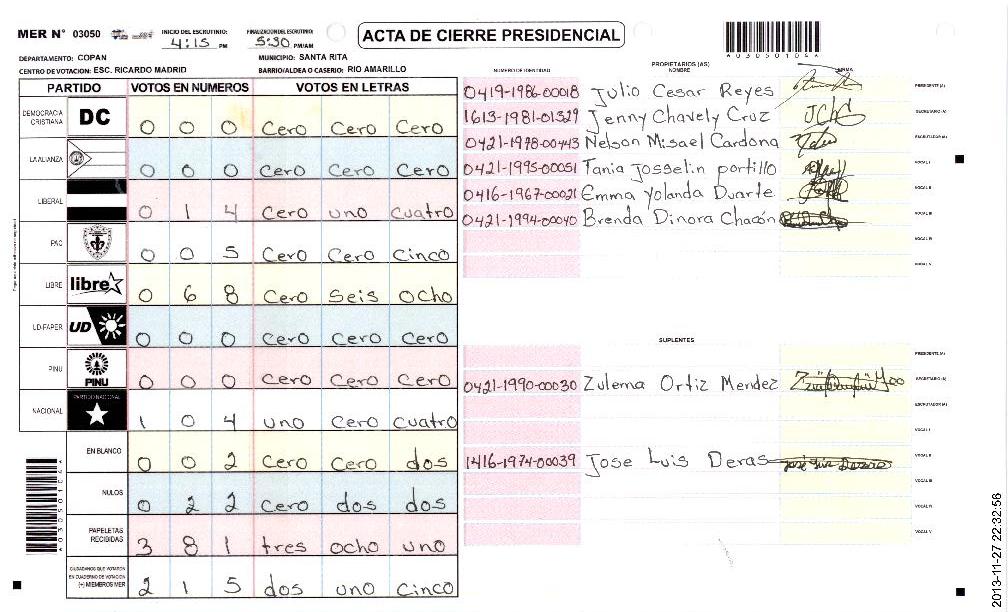 MER N° 03050 INICIO DEL ESCRUTINIO: 4:15 PM FINALIZACION DEL ESCRUTINIO: 5:30 PM/AM
ACTA DE CIERRE PRESIDENCIAL
DEPARTAMENTO: COPAN MUNICIPIO: SANTA RITA
CENTRO DE VOTACION: ESC. RICARDO MADRID BARRIO/ALDEA O CASERIO: RIO AMARILLO
PARTIDO VOTOS EN NUMEROS VOTOS EN LETRAS
DEMOCRACIA CRISTIANA DC 0 0 0 Cero Cero Cero
LA ALIANZA 0 0 0 Cero Cero Cero
LIBERAL 0 1 4 Cero uno cuatro
PAC 0 0 5 Cero Cero Cinco
LIBRE libre 0 6 8 Cero Seis Ocho
UD-FAPER UD 0 0 0 Cero Cero Cero
PINU PINU 0 0 0 Cero Cero Cero
NACIONAL PARTIDO NACIONAL 1 0 4 uno Cero cuatro
EN BLANCO 0 0 2 Cero Cero dos
NULOS 0 2 2 Cero dos dos
PAPELETAS RECIBIDAS 3 8 1 tres ocho uno
CIUDADANOS QUE VOTARON EN CUADERNO DE VOTACION (+) MIEMBROS MER 2 1 5 dos uno Cinco
A03050109A
PROPIETARIOS (AS)
NUMERO DE IDENTIDAD NOMBRE FIRMA
0419-1986-00018 Julio Cesar Reyes PRESIDENTE (A)
1613-1981-01329 Jenny Chavely Cruz SECRETARIO (A)
0421-1978-00443 Nelson Misael Cardona ESCRUTADOR (A)
0421-1995-00051 Tania Josselin portillo VOCAL I
0416-1967-00021 Emma Yolanda Duarte VOCAL II
0421-1994-00040 Brenda Dinora Chacón VOCAL III
VOCAL IV
VOCAL V
SUPLENTES
PRESIDENTE (A)
0421-1990-00030 Zulema Ortiz Mendez SECRETARIO (A)
ESCRUTADOR (A)
VOCAL I
1416-1974-00039 Jose Luis Deras VOCAL II
VOCAL III
VOCAL IV
VOCAL V
2013-11-27 22:32:56